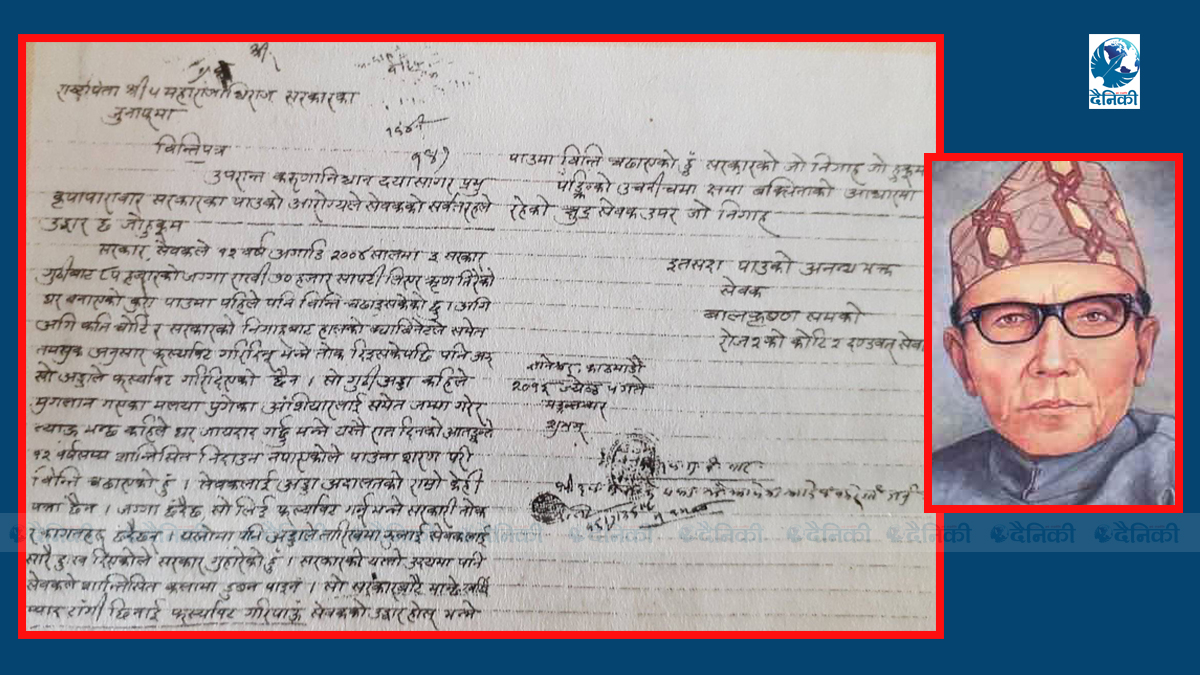 दैनिकी
श्री
राष्ट्रपिता श्री ५ महाराजाधिराज सरकारका
जुनाफमा
बिन्तिपत्र
उपरान्त करुणानिधान दयासागर प्रभु
कृपापारावार सरकारका पाउको आरोग्यले सेवकको सर्वतरहले
उद्धार छ जोहुकूम
सरकार, सेवकले १२ वर्ष अगाडि २००४ सालमा ५ सरकार
गुठीबाट हजारको जग्गा राखी ७० हजार सापटी लिएर ऋण तिरेको
घर बनाएको कुरा पाउमा पहिले पनि बिन्ति चढाइसकेको छु । अघि
अघि कति चोटि र सरकारको निगाहबाट हालको क्याबिनेटले समेत
तमसूक अनुसार फर्स्यावट गरिदिनू भन्ने तोक दिइसकेपछि पनि
सो अड्डाले फर्स्यावट गरिदिएको छैन । सो गुठी अड्डा कहिले
मुगलान गएका मलाया पुगेका अंशियारलाई समेत जम्मा गरेर
ल्याऊ भन्छ कहिले घर जायदाद गर्छु भन्ने यस्तै रात दिनको
१२ वर्षसम्म शान्तिसित निदाउन नपाएकोले पाउमा शरण परी
बिन्ति चढाएको हुँ । सेवकलाई अड्डा अदालतको राम्रो केही
पत्ता छैन । जग्गा छँदैछ सो लिई फर्स्यावट गर्नु भन्ने सरकारी तोक
छँदैछन् । यस्तोमा पनि अड्डाले तारिखमा सेवकलाई
सारै दुःख दिएकोले सरकार गुहारेको हुँ । सरकारको यस्तो उदयमा पनि
सेवकले शान्तिसित कलामा डुब्न पाइन । सो सरकारबाटै मान्छे
प्याड टाँगी छिनाई फर्स्यावट गरिपाऊँ सेवकको उद्धार होस् भन्ने
पाउमा बिन्ति चढाएको हुँ सरकारको जो निगाह जो हुकूम
उचनीचमा क्षमा बक्सिनाको आधारमा
रहेको क्षुद्र सेवक उपर जो निगाह
इतसरा पाउको अनन्य भक्त
सेवक
बालकृष्ण समको
रोज २को कोटि २ दण्डवत् सेवा
ज्ञानेश्वर, काठमाडौँ
ज्येष्ठ ५ गते
मङ्गलबार
शुभम्
दैनिकी दैनिकी दैनिकी दैनिकी दैनिकी दैनिकी दैनिकी दैनिकी दैनिकी दैनिकी दैनिकी दैनिकी